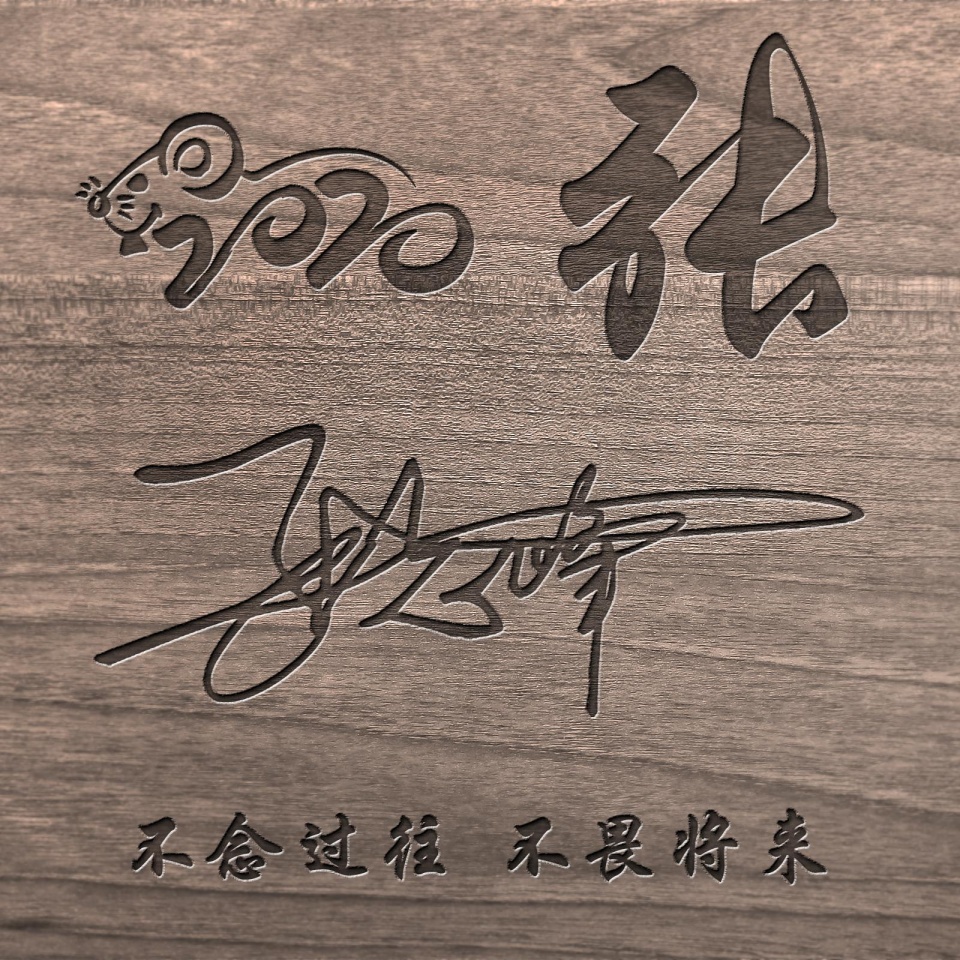 2020 张
峰
不念过往 不畏将来